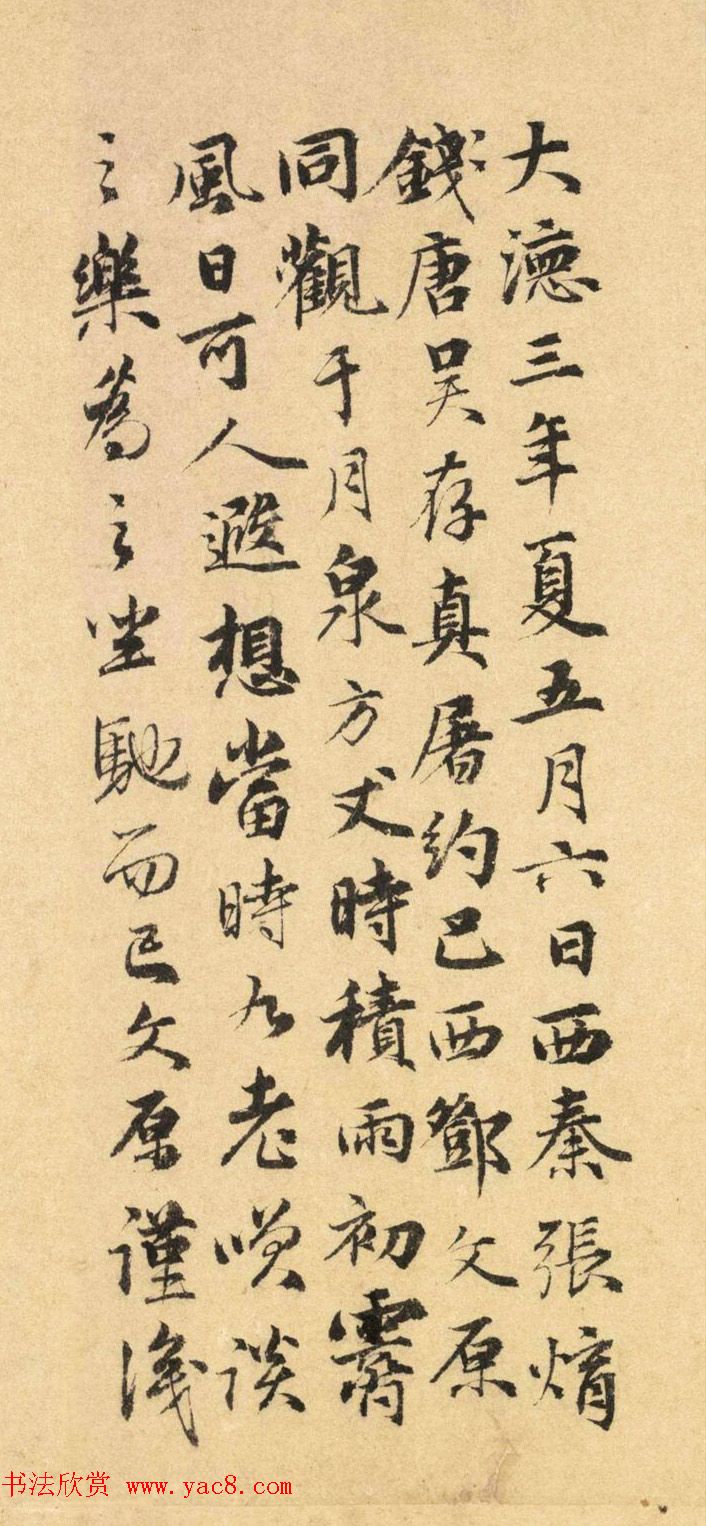 大德三年夏五月六日西秦張煟
錢唐吳存真屠約巴西鄧文原
同觀于月泉方丈時積雨初霽
風日可人遐想當時九老唉談
之樂為之坐馳而已文原謹識
书法欣赏 www.yac8.com